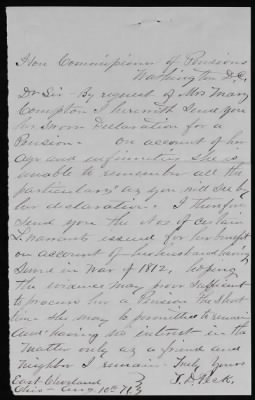 Hon Commissioner of Pensions
Washington D.C.
Dr Sir - By request of Mrs Mary
Compton I herewith Send you
her Sworn Declaration for a
Pension. On account of her
Age and infirmities she is
unable to remember all the
particulars as you will See by
her declaration. I therefore
Send you the Nos of certain
L. warrants issued for her benefit
on account of her husband having
Served in War of 1812, hoping
the evidence may prove Sufficient
to procure her a Pension the Short
time she may be permitted to remain
And having no interest in the
Matter only as a friend and
Neighbor I remain - Truly Yours
East Cleveland
Ohio - Aug 10th 71
Peck.